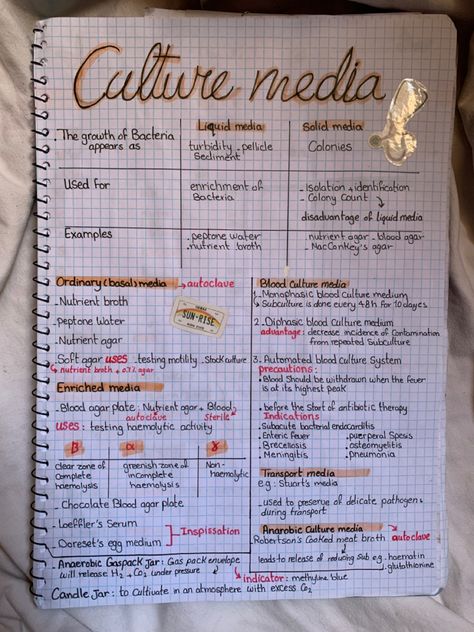 Culture media
Liquid media
Solid media
. The growth of Bacteria
appears as
turbidity . pellicle
Sediment
Colonies
Used for
enrichment of
Bacteria
- isolation + identification
- Colony Count
disadvantage of liquid media
Examples
. peptone water
. nutrient broth
nutrient agar . blood agar
- MacConkey's agar
Ordinary (basal) media → autoclave
- Nutrient broth
. peptone Water
. Nutrient agar
. Soft agar uses . testing motility . Stock culture
↳ nutrient broth + 0.7% agar
SUN-RISE
Enriched media
. Blood agar plate : Nutrient agar + Blood
autoclave Sterile
uses : testing haemolytic activity
β α γ
clear zone of
Complete
haemolysis
greenish zone of
incomplete
haemolysis
Non-
haemolytic
- Chocolate Blood agar plate
- Loeffler's Serum
- Dorset's egg medium
Inspissation
Blood Culture media
1. Monophasic blood Culture medium
↳ Subculture is done every 48h for 10 dayes
2. Diphasic blood Culture medium
advantage : decrease incidence of Contamination
from repeated Subculture
3. Automated blood Culture System
precautions :
. Blood Should be withdrawn when the fever
is at its highest peak
. before the Start of antibiotic therapy
Indications
. Subacute bacterial endocarditis
. Enteric fever . puerperal Spesis
. Brecellosis . osteomyelitis
. Meningitis . pneumonia
Transport media
e.g : Stuart's media
. used to preserve of delicate pathogens
during transport
Anarobic Culture media → autoclave
Robertson's Cooked meat broth
leads to release of reducing Sub e.g . haematin
. glutathionine
. Anaerobic Gaspack Jar : Gas pack envelope
will release H2 + Co2 under pressure
Indicator : methyline blue
Candle Jar : to Cultivate in an atmosphere with excess Co2